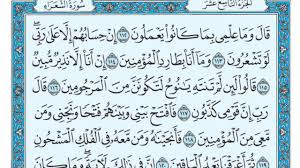 الجزء التاسع عشر
سورة الشعراء
قَالَ وَمَا عِلْمِى بِمَا كَانُوا۟ يَعْمَلُونَ ١١٢ إِنْ حِسَابُهُمْ إِلَّا عَلَىٰ رَبِّى
لَوْ تَشْعُرُونَ ١١٣ وَمَآ أَنَا۠ بِطَارِدِ ٱلْمُؤْمِنِينَ ١١٤ إِنْ أَنَا۠ إِلَّا نَذِيرٌ مُّبِينٌ
١١٥ قَالُوا۟ لَئِن لَّمْ تَنتَهِ يَـٰنُوحُ لَتَكُونَنَّ مِنَ ٱلْمَرْجُومِينَ ١١٦ قَالَ
رَبِّ إِنَّ قَوْمِى كَذَّبُونِ ١١٧ فَٱفْتَحْ بَيْنِى وَبَيْنَهُمْ فَتْحًا وَنَجِّنِى وَمَن
مَّعِىَ مِنَ ٱلْمُؤْمِنِينَ ١١٨ فَأَنجَيْنَـٰهُ وَمَن مَّعَهُۥ فِى ٱلْفُلْكِ ٱلْمَشْحُونِ